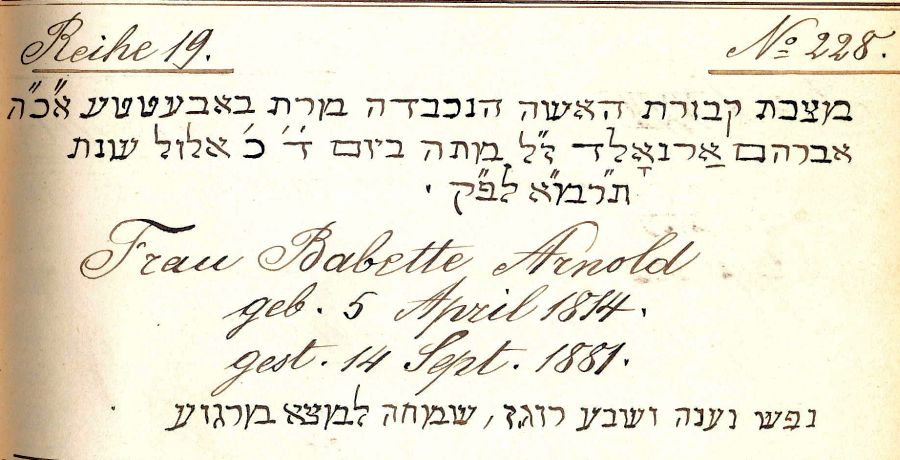 Reihe 19. No 228.
מצבת קבורת האשה הנכבדה מרת באבעטטע א"כ"ה
אברהם אַרנאָלד ז"ל מתה ביום ד' כ' אלול שנת
ת"רמ"א לפ"ק.
Frau Babette Arnold
geb. 5 April 1814.
gest. 14 Sept. 1881.
נפש נענה ושבע רוגז, שמחה למצא מרגוע